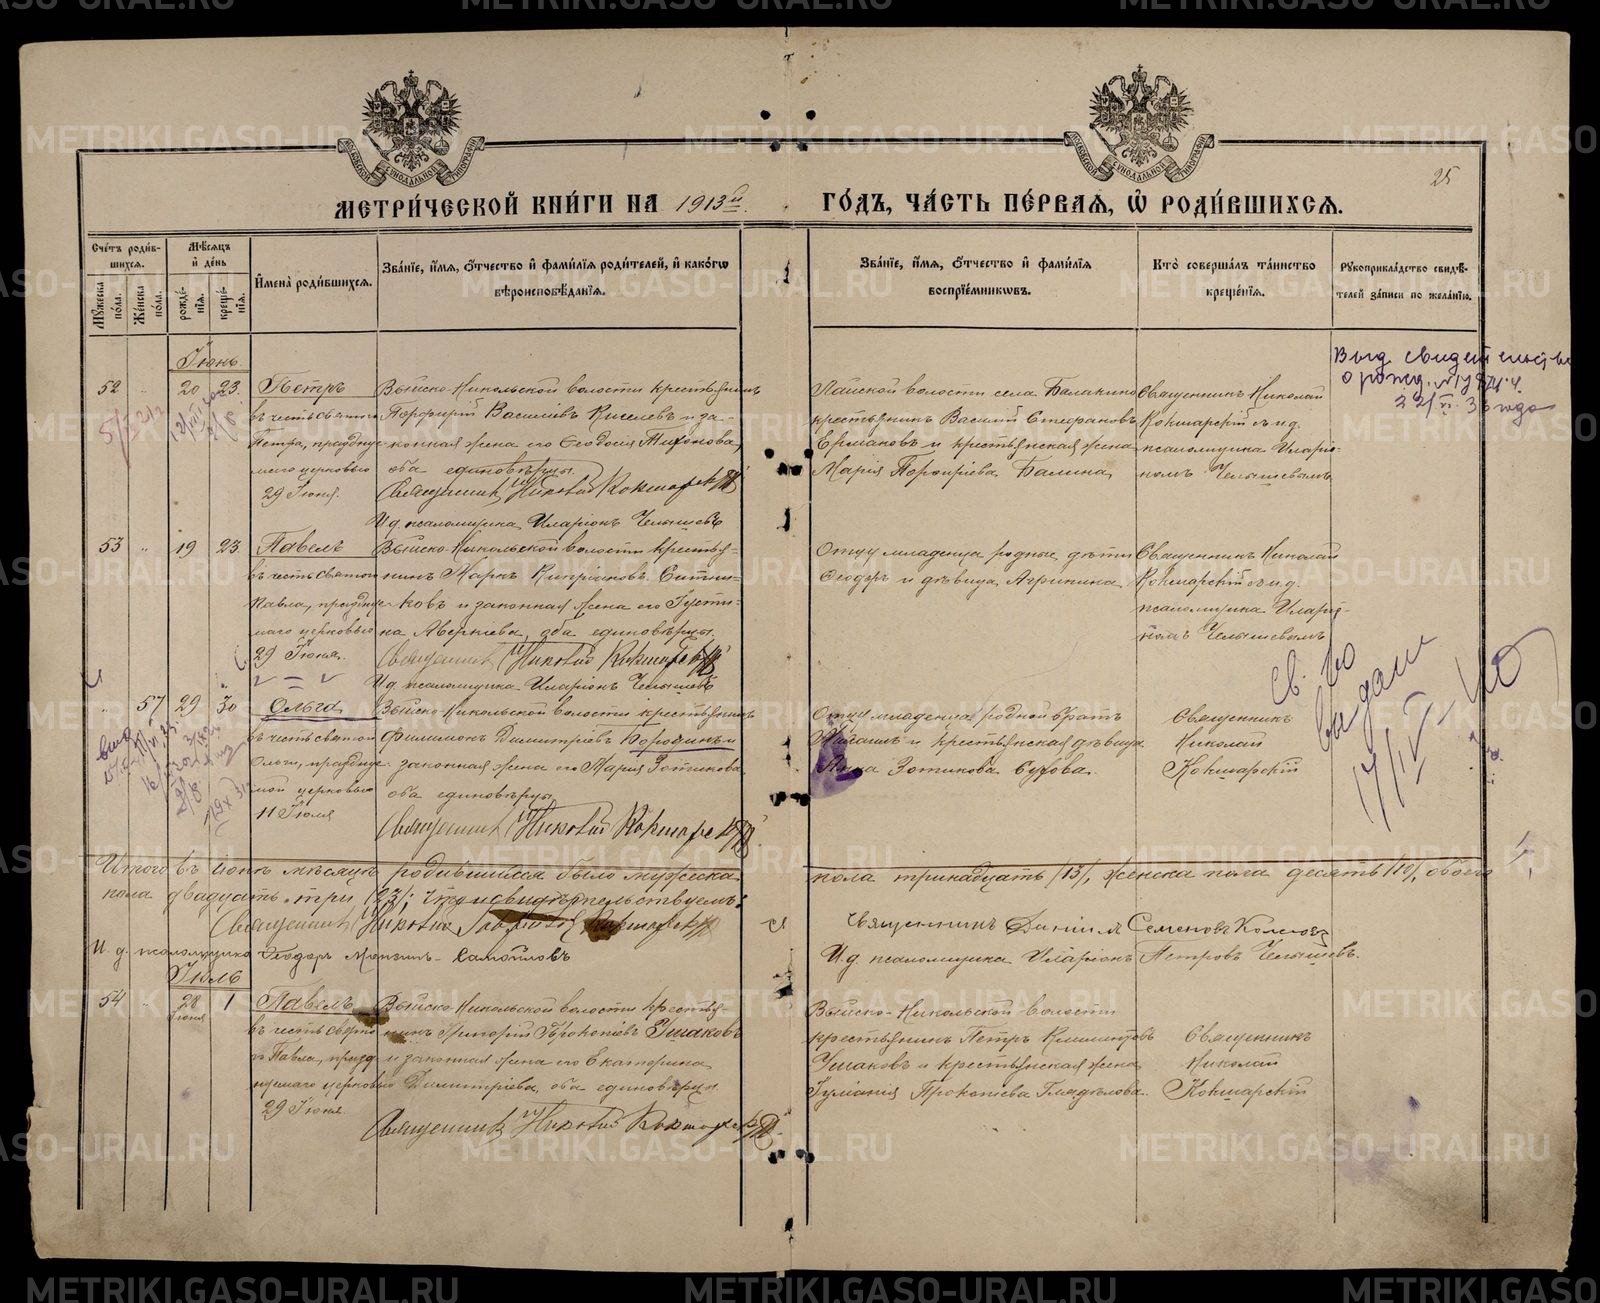 МЕТРИ́ЧЕСКОЙ КНИ́ГИ НА 1913й
ГО́ДЪ, ЧА́СТЬ ПЕ́РВАЯ, Ѡ҆ РОДИ́ВШИХСЯ.
25
Сче́тъ роди́в-
шихся.
Мѣ́сяцъ
и҆ де́нь
Мꙋ́жеска по́ла.
Же́нска по́ла.
рожде́-
нїя.
креще́-
нїя.
И҆мена̀ роди́вшихся.
Зва́нїе, и҆́мя, ѻ҆́тчество и҆ фами́лїя роди́телей, и҆ како́гѡ
вѣроисповѣ́данїя.
Зва́нїе, и҆́мя, ѻ҆́тчество и҆ фами́лїя
воспрїе́мникѡвъ.
Кто̀ соверша́лъ та́инство
креще́нїя.
Рꙋкоприкла́дство свидѣ́-
телей за́писи по жела́нїю.
Іюнь
52 " 20 23. Петръ
въ честь святого
Петра, праздну-
емаго церковью
29 Іюня.
Выйско-Никольской волости крестьянинъ
Порфирій Василіевъ Киселевъ и за-
конная жена его Ѳеодосія Тихонова,
оба единовѣрцы.
Священникъ Николай Кокшарскій
И.д. псаломщика Иларіонъ Челышевъ
Лайской волости села Балакино
крестьянинъ Василій Стефановъ
Ермаковъ и крестьянская жена
Марія Порфиріева Балина
Священникъ Николай
Кокшарскій съ и.д.
псаломщика Иларіо-
номъ Челышевымъ
Выд свидетельство
о рожд. №
53 " 19 23. Павелъ
въ честь святого
Павла, праздну-
емаго церковью
29 Іюня.
Выйско-Никольской волости крестья-
нинъ Маркъ Кипріановъ Ситни-
ковъ и законная жена его Іусти-
на Аверкіева, оба единовѣрцы.
Священникъ Николай Кокшарскій
И.д. псаломщика Иларіонъ Челышевъ
Отцу младенца родные дѣти
Ѳеодоръ и дѣвица Агрипина
Священникъ Николай
Кокшарскій съ и.д.
псаломщика Иларіо-
номъ Челышевымъ
" 57 29 30 Ольга
въ честь святой
Ольги, праздну-
мой церковью
11 Іюля
Выйско-Никольской волости крестьянинъ
Филимонъ Димитріевъ Бородинъ и
законная жена его Марія Зотикова
оба единовѣрцы
Священникъ Николай Кокшарскій
Отцу младенца родной братъ
и крестьянская дѣвица
Анна Зотикова Сухова.
Священникъ
Николай
Кокшарскій
Св. во
выдан
17/IV-40
Итого въ іюнѣ мѣсяцѣ родившихся было мужеска
пола тринадцать /13/, женска пола десять /10/, обоего
пола двадцать три /23/; Что и свидѣтельствуемъ:
Священникъ Николай Кокшарскій
Священникъ Даніилъ Семеновъ
И. д. псаломщика Ѳеодоръ Самойловъ
И.д. псаломщика Иларіонъ Петровъ Челышевъ.
Іюль
54 " 28 Іюня 1 Павелъ
29 Іюня
Выйско-Никольской волости крестья-
нинъ Григорій Прокопіевъ Ушаковъ
и законная жена его Екатерина
Димитріева, оба единовѣрцы.
Священникъ Николай Кокшарскій
Выйско-Никольской волости
крестьянинъ Петръ Климентовъ
Ушаковъ и крестьянская жена
Іуліанія Прокопіева Гладкова.
Священникъ
Николай
Кокшарскій
METRIKI.GASO-URAL.RU